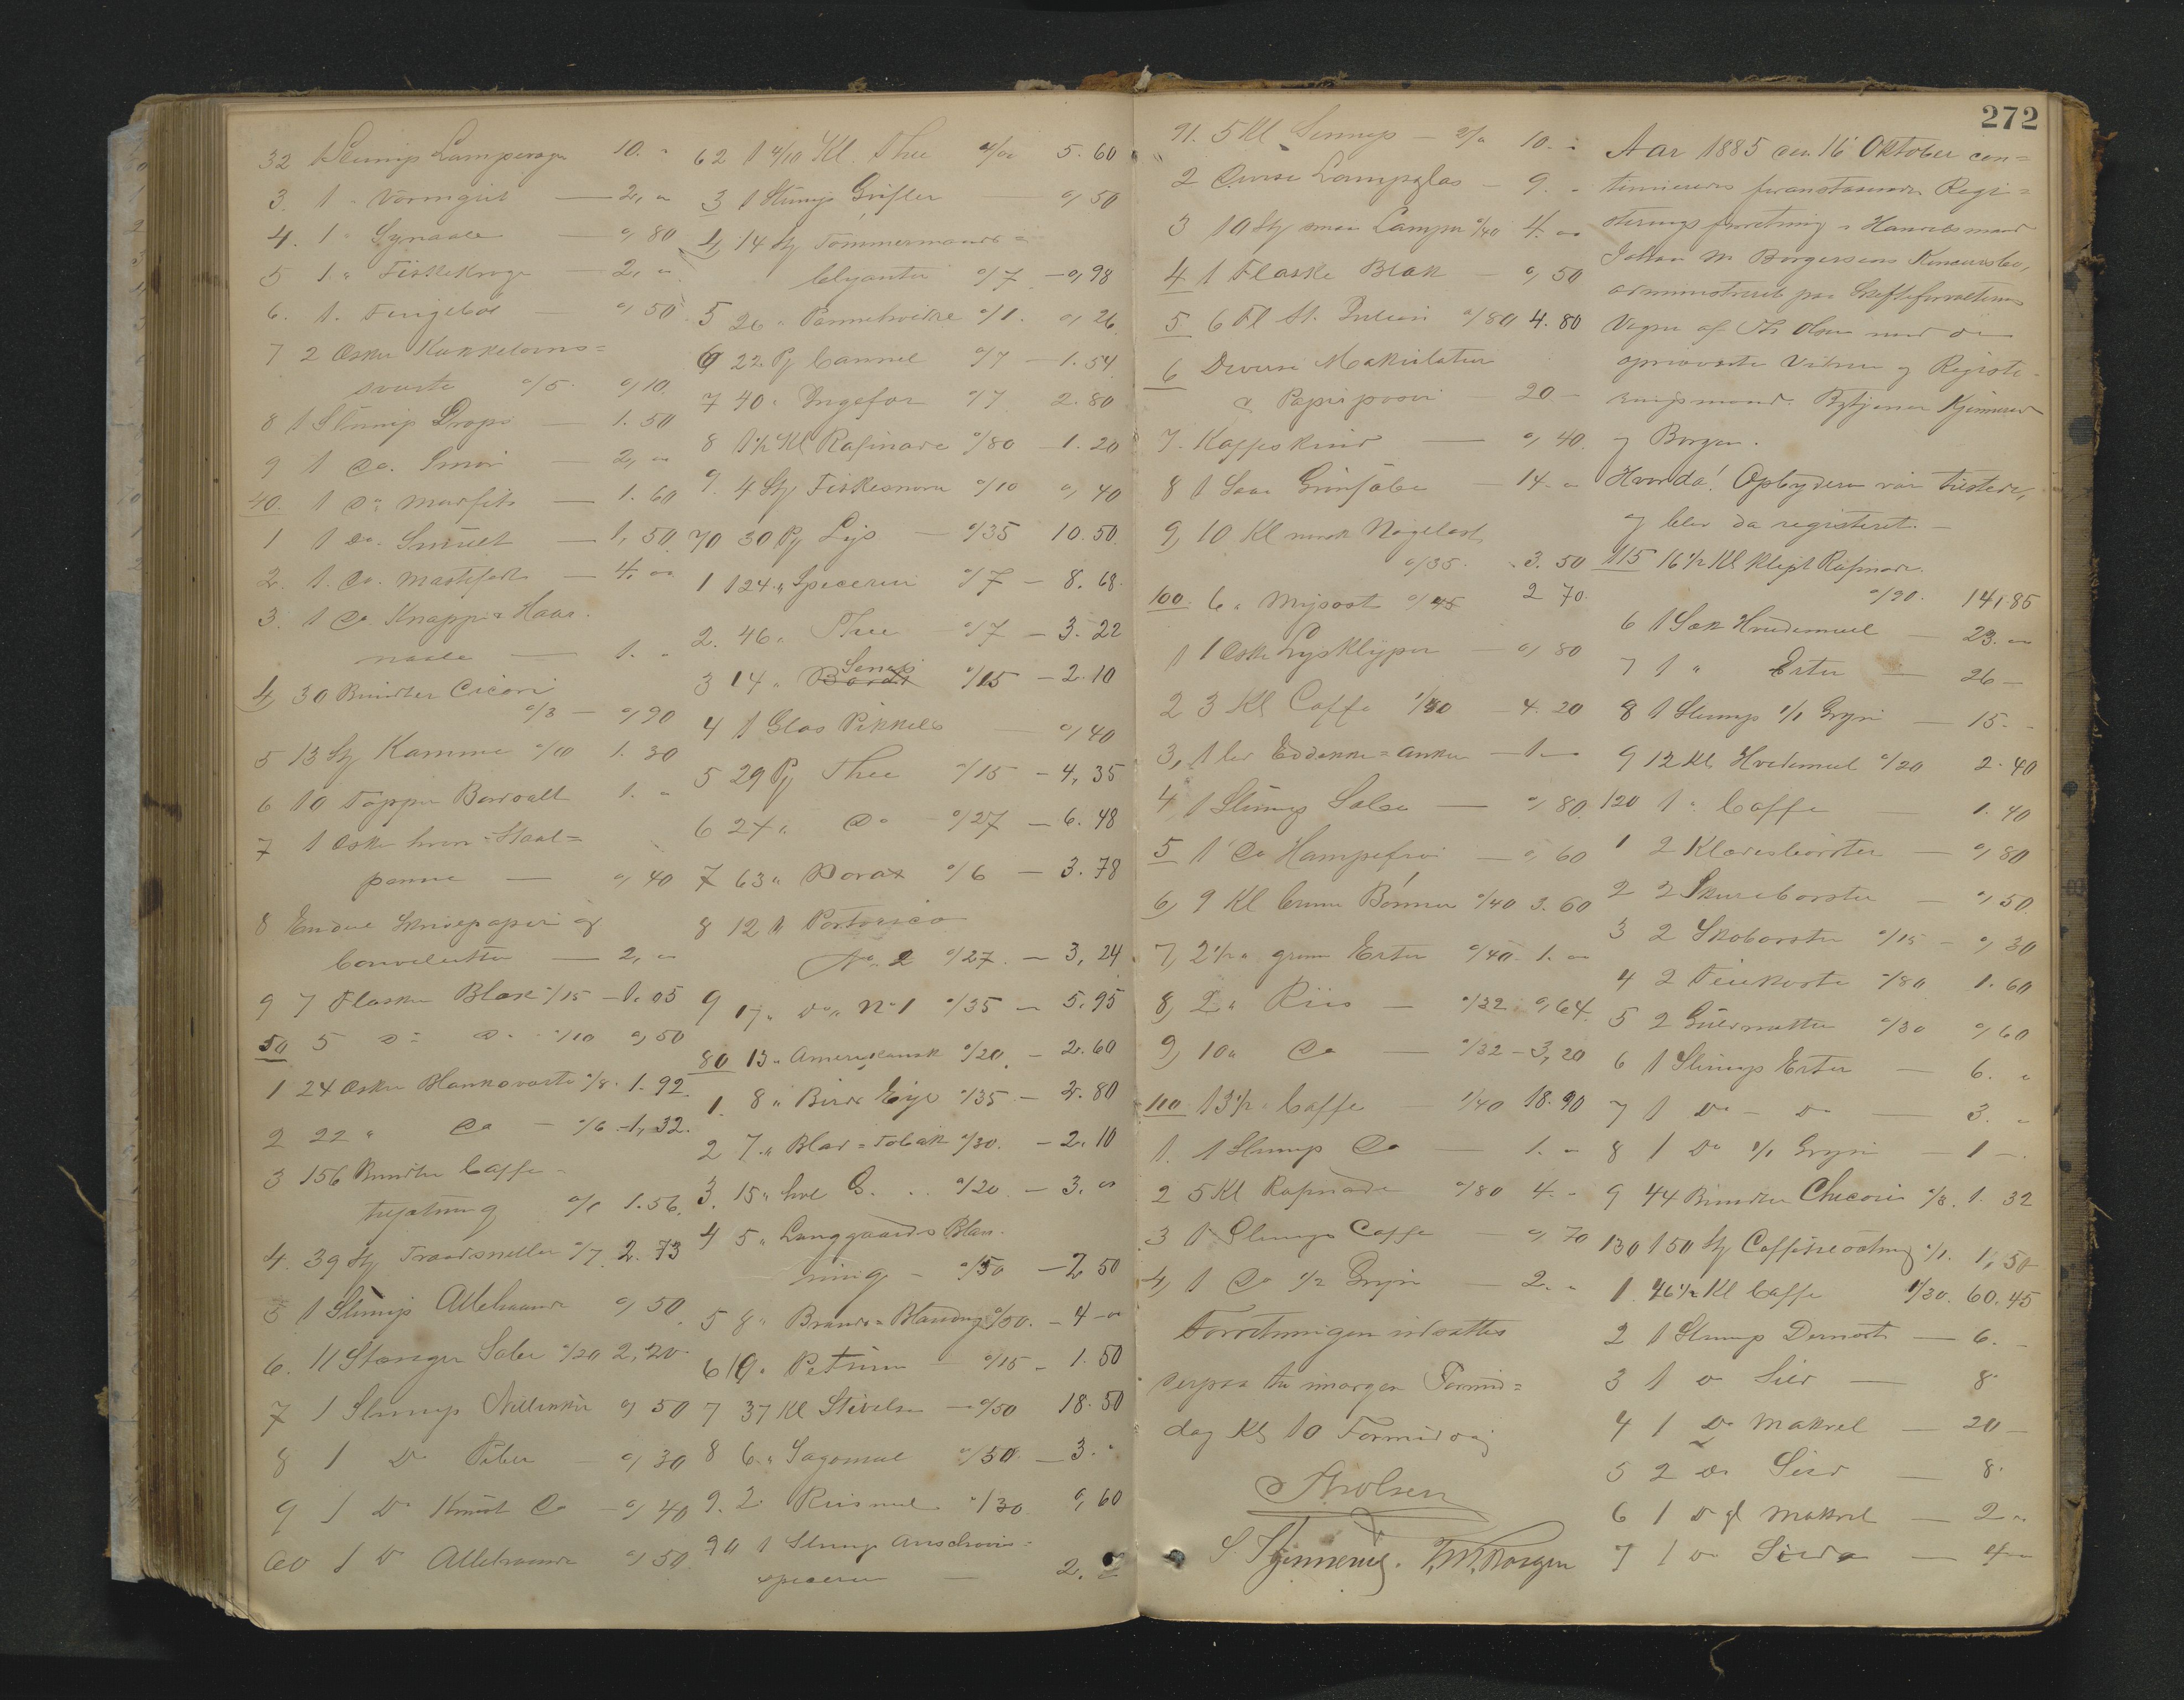 32 1 Slump Lampevæger 10. "
3. 1 " 2, "
4. 1 " Synaale 0, 80
5 1 " Fiskekroge 2, "
6. 1. Fingerbøl 0, 50
7 2 Æsker Kakkelovns=
sværte 0/5 0, 10.
8 1 Slump Drops 1. 50
9 1 Do. 2, "
40. 1 Do 1. 60
1 1 Do. 1, 50
2. 1. Do. 4. "
3. 1 Do Knappe & Haar
naale 1. "
4, 30 Bundter Cicori
0/3 — 0, 90
5 13 St Kamme 0/10 1. 30
6 10 1. "
7 1 Æske Staal=
penne — 0, 40
8 Endel Skrivepapir og
Convolutter — 2, "
9 7 Flasker Blæk 0/15 — 1. 05
50 5 Do Do 0/10 0, 50
1 24 Æsker Blanksværte 0/8. 1. 92.
2 22 " Do — 0/6 — 1, 32.
3 156 Bundter Caffe-
tilsætning 0/1 1. 56.
4. 39 St Traadsneller 0/7. 2. 73
5 1 Slump Allehaande 0, 50
6. 11 Stænger Sæbe 0/20 2, 20
7 1 Slump Nelliker 0, 50
8 1 Do Peber — 0, 30
9 1 Do Knust Do — 0, 40
60 1 Do Allehaande 0, 50
62 1 4/10 Kl. Thee 5. 60
3 1 Slump Grifler 0, 50
4, 14 St Tømmermands=
blyanter 0/7 — 0, 98
5 26 " 0/1. 0, 26.
6 22 Pj Cannel 0/7 — 1. 54
7 40 " Ingefær 0/7 2. 80
8 1 1/2 Kl Rafinade 0/80 — 1. 20
9. 4 St Fiskesnører 0/10 0, 40
70 30 Pj Lys — 0/35 10. 50.
1 124 " Specerier 0/7 — 8. 68.
2. 46 " Thee 0/7 — 3. 22
3 14 " Senep 0/15 — 2. 10
4 1 Glas Pikkels 0, 40
5 29 Pj Thee 0/15 — 4, 35
6 24 " Do 0/27 — 6. 48
7 63 " Borax 0/6 — 3. 78
8 12 " Portorico
No. 2 0/27. — 3, 24
9 17 " Do " No 1 0/35 — 5. 95
80 13 " Amerikansk 0/20. — 2. 60
1. 8 " Birds Eye 0/35 — 2. 80
2 7 " Blad=Tobak 0/30. — 2. 10
3. 15 " 0/20 — 3. "
4 5 " Langgaards Blan-
ning — 0/50 — 2 50
5 8 " Blanding 0/50. — 4 "
6 10 " Petum — 0/15 — 1. 50
7 37 Kl Stivelse — 0/50 18. 50
8 6 " Sagomel 0/50 — 3. "
9. 2 Riismel 0/30 0, 60
90 1 Slump Anschovis=
specerier — 2. "
272
91. 5 Kl Sennep — 2/" 10. "
2 Diverse Lampeglas — 9. "
3 10 St smaa Lamper 0/40 4. "
4 1 Flaske Blæk — 0, 50
5. 6 Fl St. Julien 0/80 4. 80
6 Diverse Makulatur
& Papirposer — 20 —
7. 0, 40
8 1 Grønsæbe — 14. "
9, 10 Kl norsk Nøgelost
0/35. 3. 50
100. 6 " Mysost 0/45 2 70.
1 1 Æske Lysklyper — 0, 80
2 3 Kl Caffe 1/40 — 4. 20
3, 1 Eddekke=anker — 1 —
4 1 Slump Sæbe — 0, 80.
5 1 Do Hampefrø — 0, 60
6, 9 Kl brune Bønner 0/40 3. 60
7, 2 1/2 " grønne Erter 0/40 1. "
8, 2 " Riis — 0/32 0, 64
9, 10 " Do — 0/32 — 3, 20
110 13 1/2 " Caffe — 1/40 18. 90
1. 1 Slump Do — 1. "
2 5 Kl Rafinade 0/80 4. "
3 1 Slump Caffe — 0, 70
4, 1 Do 1/2 Gryn — 2. "
Forretningen udsattes
derpaa til imorgen Formid=
dag Kl 10 Formiddag
Th Olsen
S. Kjennerud. T. M. Borgen
Aar 1885 den 16 Oktober con=
tinueredes foranstaaende Regi=
steringsforretning i Handelsmand
Johan M Borgersens Konkursbo,
administreret paa Skifteforvalterens
Vegne af Th Olsen med de
opnævnte Vidner og Registe-
ringsmænd. Bytjener Kjennerud
og Borgen.
Hvorda! Opbyderen var tilstede,
og blev da registeret. —
115 16 1/2 Kl Klipt Rafinade.
0/90. 14, 85
6 1 Sæk Hvedemeel — 23. "
7 1 " Erter — 26 —
8 1 Slump 1/1 Gryn — 15. -
9 12 Kl Hvedemeel 0/20 2. 40
120 1 " Caffe — 1. 40
1 2 Klædesbørster — 0, 80
2 2 Skurebørster — 0, 50.
3 2 Skobørster 0/15 — 0, 30
4 2 Feiekoste 0/80 1. 60
5 2 Gulvmatter 0/30 0, 60
6 1 Slump Erter — 6. "
7 1 Do — Do — 3. "
8 1 Do 1/1 Gryn — 1 —.
9 44 Bundter Checorie 0/3. 1. 32
130 150 St Caffitilsætning 0/1. 1, 50
1 46 1/2 Kl Caffe 1/30. 60. 45
2 1 Slump — 6. —
3 1 Do Sild — 8 "
4 1 Do Makrel — 20 —
5 2 Do Sild — 8.
6 1 Do gl Makrel — 2 "
7 1 Do Sild